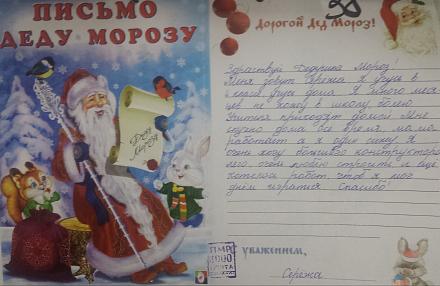 ПИСЬМО
ДЕДУ МОРОЗУ
Дорогой Дед Мороз!
Здраствуй Дедушка Мороз!
Меня зовут Сережа я учусь в
классе учусь дома. Я много меся
цев не хожу в школу болею.
Учителя приходят домой. Мне
скучно дома все время, мама
работает а я один сижу. Я
очень хочу большого конструктора
лего очень люблю строить и еще
хотелось робот, чтоб я мог
днём играться. Спасибо!
Уважением,
Сережа
ПМР
ПОЧТА